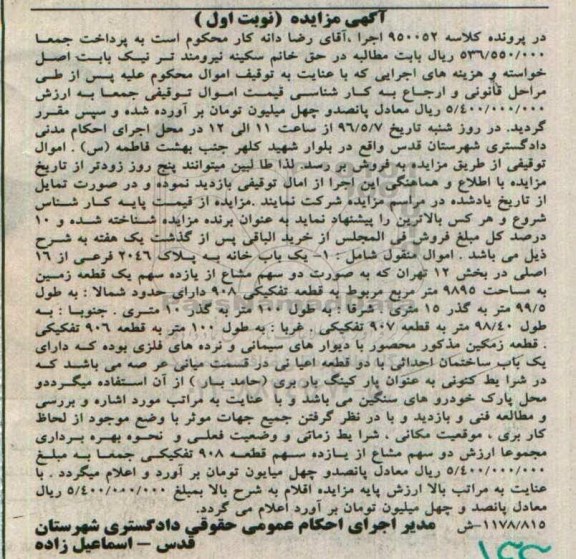 آگهی مزایده (نوبت اول)
در پرونده کلاسه ۹۵۰۰۵۲ اجرا ،آقای رضا دانه کار محکوم است به پرداخت جمعا
۵۳۶/۵۵۰/۰۰۰ ریال بابت مطالبه در حق خانم سکینه نیرومند تر نیک بابت اصل
خواسته و هزینه های اجرایی که با عنایت به توقیف اموال محکوم علیه پس از طی
مراحل قانونی و ارجاع به کار شناسی قیمت اموال توقیفی جمعا به ارزش
۵/۴۰۰/۰۰۰/۰۰۰ ریال معادل پانصدو چهل میلیون تومان بر آورده شده و سپس مقرر
گردید. در روز شنبه تاریخ ۹۶/۵/۷ از ساعت ۱۱ الی ۱۲ در محل اجرای احکام مدنی
دادگستری شهرستان قدس واقع در بلوار شهید کلهر جنب بهشت فاطمه (س) . اموال
توقیفی از طریق مزایده به فروش بر رسد. لذا طا لبین میتوانند پنج روز زودتر از تاریخ
مزایده با اطلاع و هماهنگی این اجرا از امال توقیفی بازدید نموده و در صورت تمایل
از تاریخ یادشده در مراسم مزایده شرکت نمایند .مزایده از قیمت پایه کار شناس
شروع و هر کس بالاترین را پیشنهاد نماید به عنوان برنده مزایده شناخته شده و ۱۰
درصد کل مبلغ فروش فی المجلس از خرید الباقی پس از گذشت یک هفته به شرح
ذیل می باشد . اموال منقول شامل : ۱- یک باب خانه به پلاک ۲۰۴۶ فرعی از ۱۶
اصلی در بخش ۱۲ تهران که به صورت دو سهم مشاع از یازده سهم یک قطعه زمین
به مساحت ۹۸۹۵ متر مربع مربوط به قطعه تفکیکی ۹۰۸ دارای حدود شمالا : به طول
۹۹/۵ متر به گذر ۱۵ متری . شرقا : به طول ۱۰۰ متر به گذر ۱۰ متری . جنوبا : به
طول ۹۸/۴۰ متر به قطعه ۹۰۷ تفکیکی . غربا : به طول ۱۰۰ متر به قطعه ۹۰۶ تفکیکی
. قطعه زمکین مذکور محصور با دیوار های سیمانی و نرده های فلزی بوده که دارای
یک باب ساختمان احداثی با دو قطعه اعیا نی در قسمت میانی عر صه می باشد که
در شرا یط کنونی به عنوان پار کینگ بار بری (حامد بار) از آن استفاده میگرددو
محل پارک خودرو های سنگین می باشد و با عنایت به مراتب مورد اشاره و بررسی
و مطالعه فنی و بازدید و با در نظر گرفتن جمیع جهات موثر با وضع موجود از لحاظ
کار بری ، موقعیت مکانی ، شرا یط زمانی و وضعیت فعلی و نحوه بهره برداری
مجموعا ارزش دو سهم مشاع از یازده سهم قطعه ۹۰۸ تفکیکی جمعا به مبلغ
۵/۴۰۰/۰۰۰/۰۰۰ ریال معادل پانصدو چهل میلیون تومان بر آورد و اعلام میگردد . با
عنایت به مراتب بالا ارزش پایه مزایده اقلام به شرح بالا بمبلغ ۵/۴۰۰/۰۰۰/۰۰۰ ریال
معادل پانصد و چهل میلیون تومان بر آورد اعلام می گردد.
۱۱۷۸/۸۱۵–ش مدیر اجرای احکام عمومی حقوقی دادگستری شهرستان
قدس – اسماعیل زاده